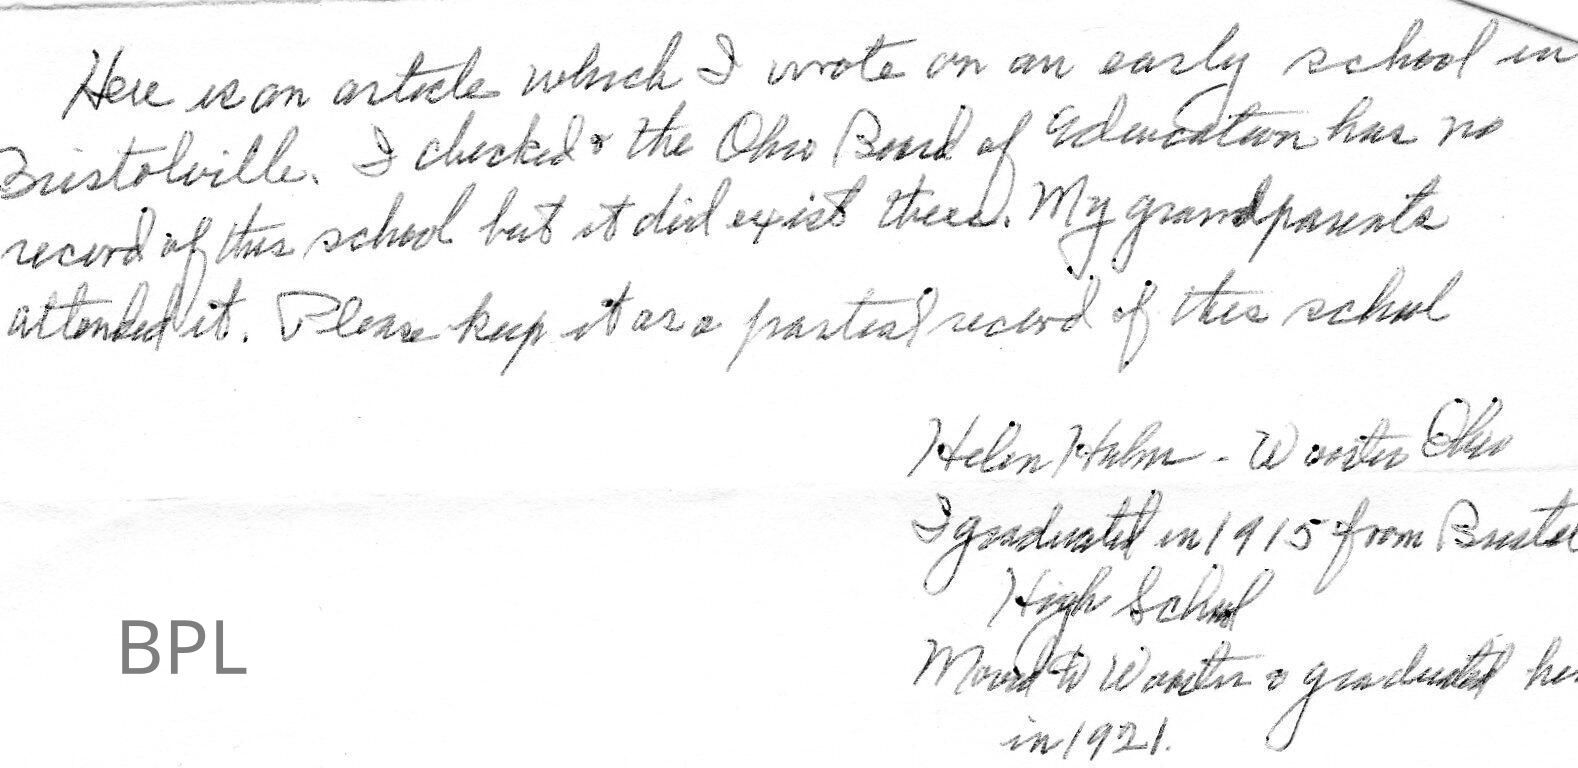 Here is an article which I wrote on an early school in
Bristolville. I checked & the Ohio Board of Education has no
record of this school but it did exist there. My grandparents
attended it. Please keep it as a partial record of this school
Helen Hulm - Wooster Ohio
I graduated in 1915 from Bristol
High School
Moved to Wooster & graduated here
in 1921.
BPL